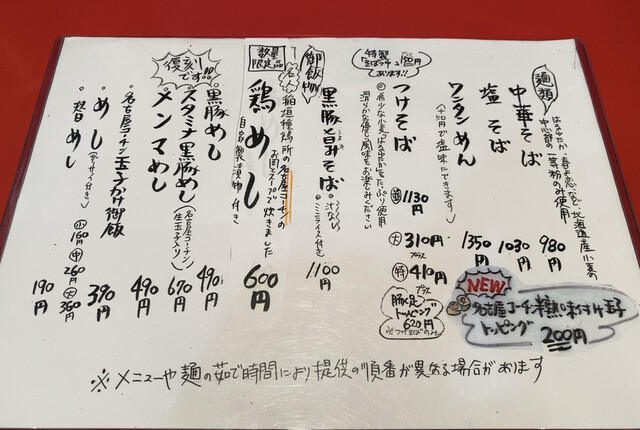 麺類
はるゆたか、春よ恋など、北海道産小麦の
中心部の一等粉のみ使用
中華そば 980円
塩そば 1030円
ワンタンめん 1350円
(+50円で塩味にできます)
つけそば
並 1130円
大 310円プラス
特 410円プラス
希少な小麦「はるゆたか」をたっぷり使用
滑らかな食感と風味をお楽しみください
特製
ります!!
豚足
トッピング
620円
つけそばのみ
NEW
名古屋コーチン半熟味付け玉子
トッピング 200円
御飯物
黒豚と旨みそば 1100円
汁なし
ミニライス付き
数量
限定品
鶏めし 600円
稲垣種鶏所の名古屋コーチンの
お肉とスープで炊きました
自家製漬物付き
復刻
です!!!
黒豚めし 490円
スタミナ黒豚めし 670円
(名古屋コーチン
生玉子入り)
メンマめし 490円
名古屋コーチン玉子かけ御飯 390円
めし
小 160円
中 260円
大 360円
替めし 190円
※メニューや麺の茹で時間により提供の順番が異なる場合があります